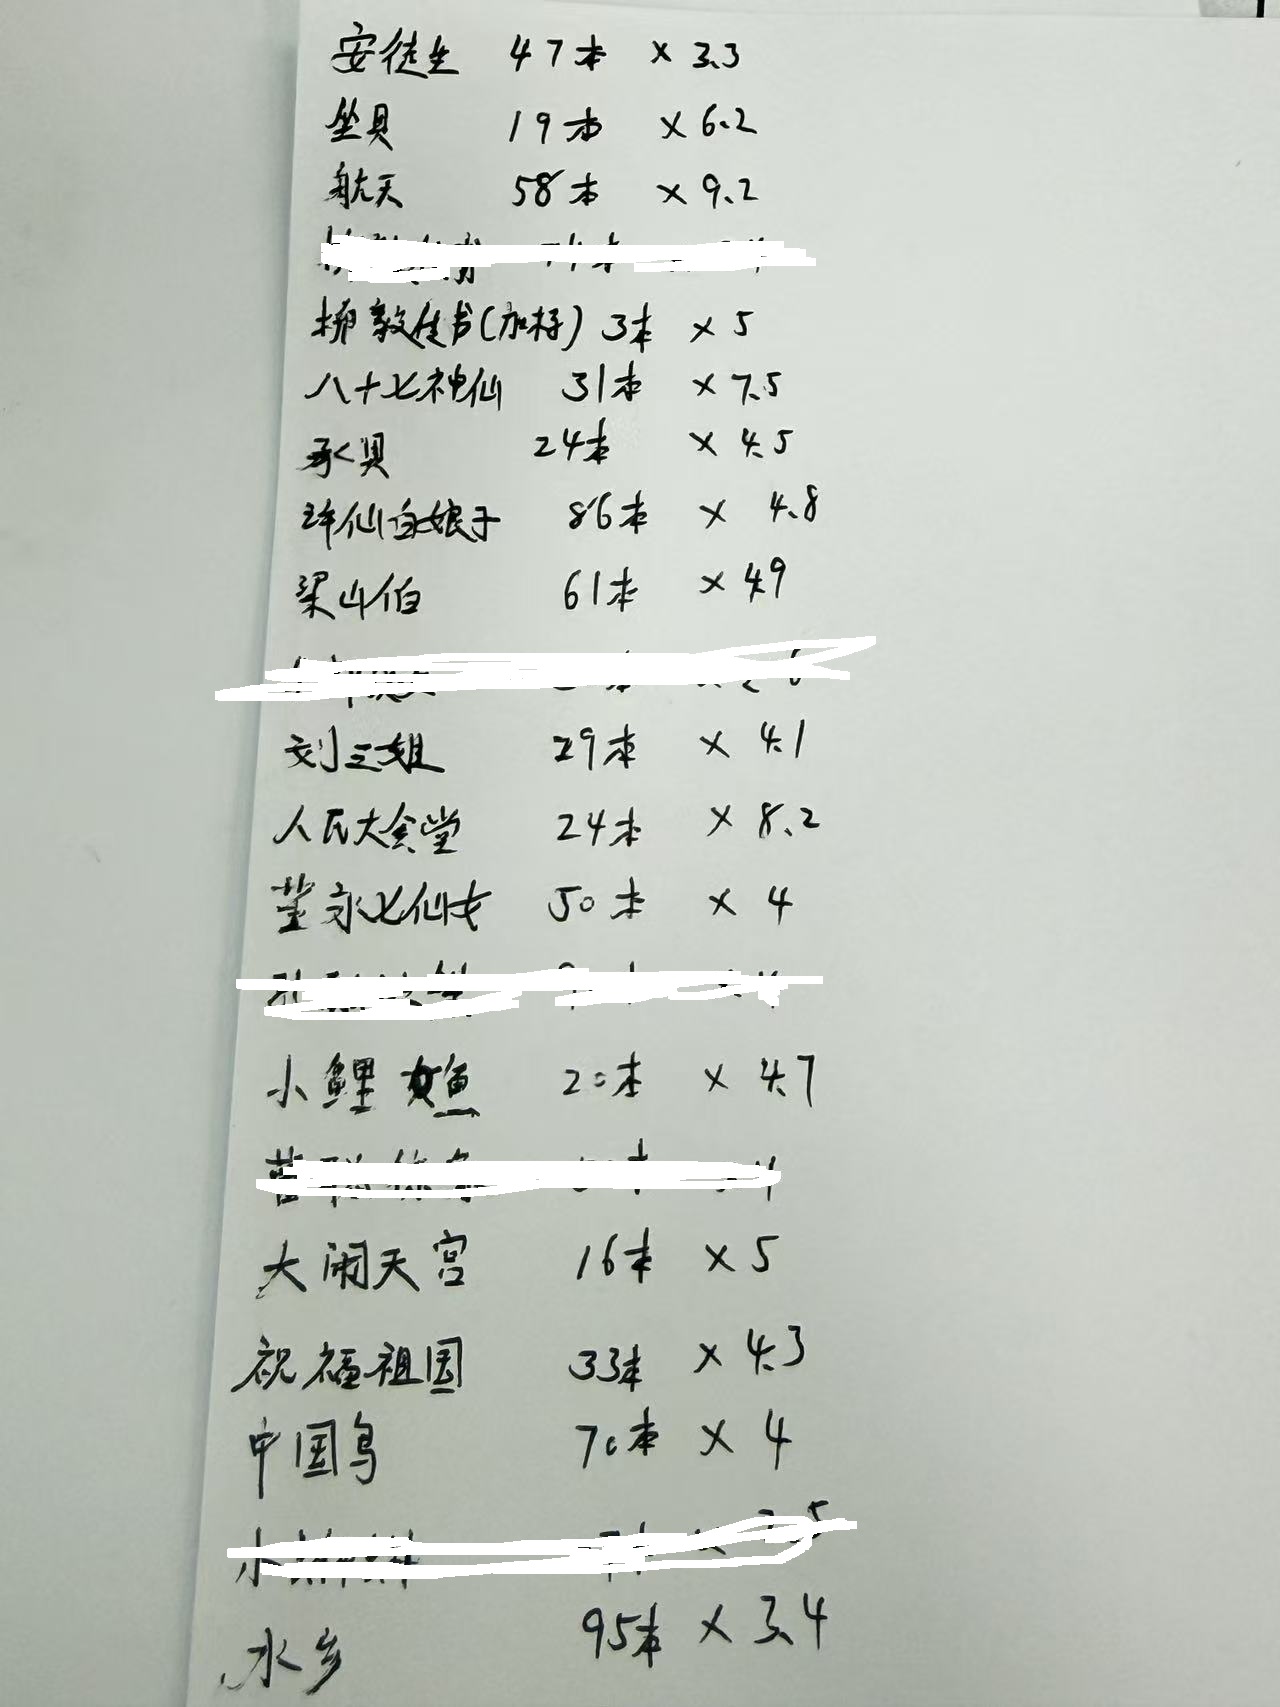 安徒生 47本 × 3.3
坐具 19本 × 6.2
航天 58本 × 9.2
柳敦佳书(加标) 3本 × 5
八十七神仙 31本 × 7.5
承具 24本 × 4.5
许仙白娘子 86本 × 4.8
梁山伯 61本 × 4.9
刘三姐 29本 × 4.1
人民大会堂 24本 × 8.2
董永七仙女 50本 × 4
小鲤鱼 20本 × 4.7
大闹天宫 16本 × 5
祝福祖国 33本 × 4.3
中国鸟 70本 × 4
水乡 95本 × 3.4